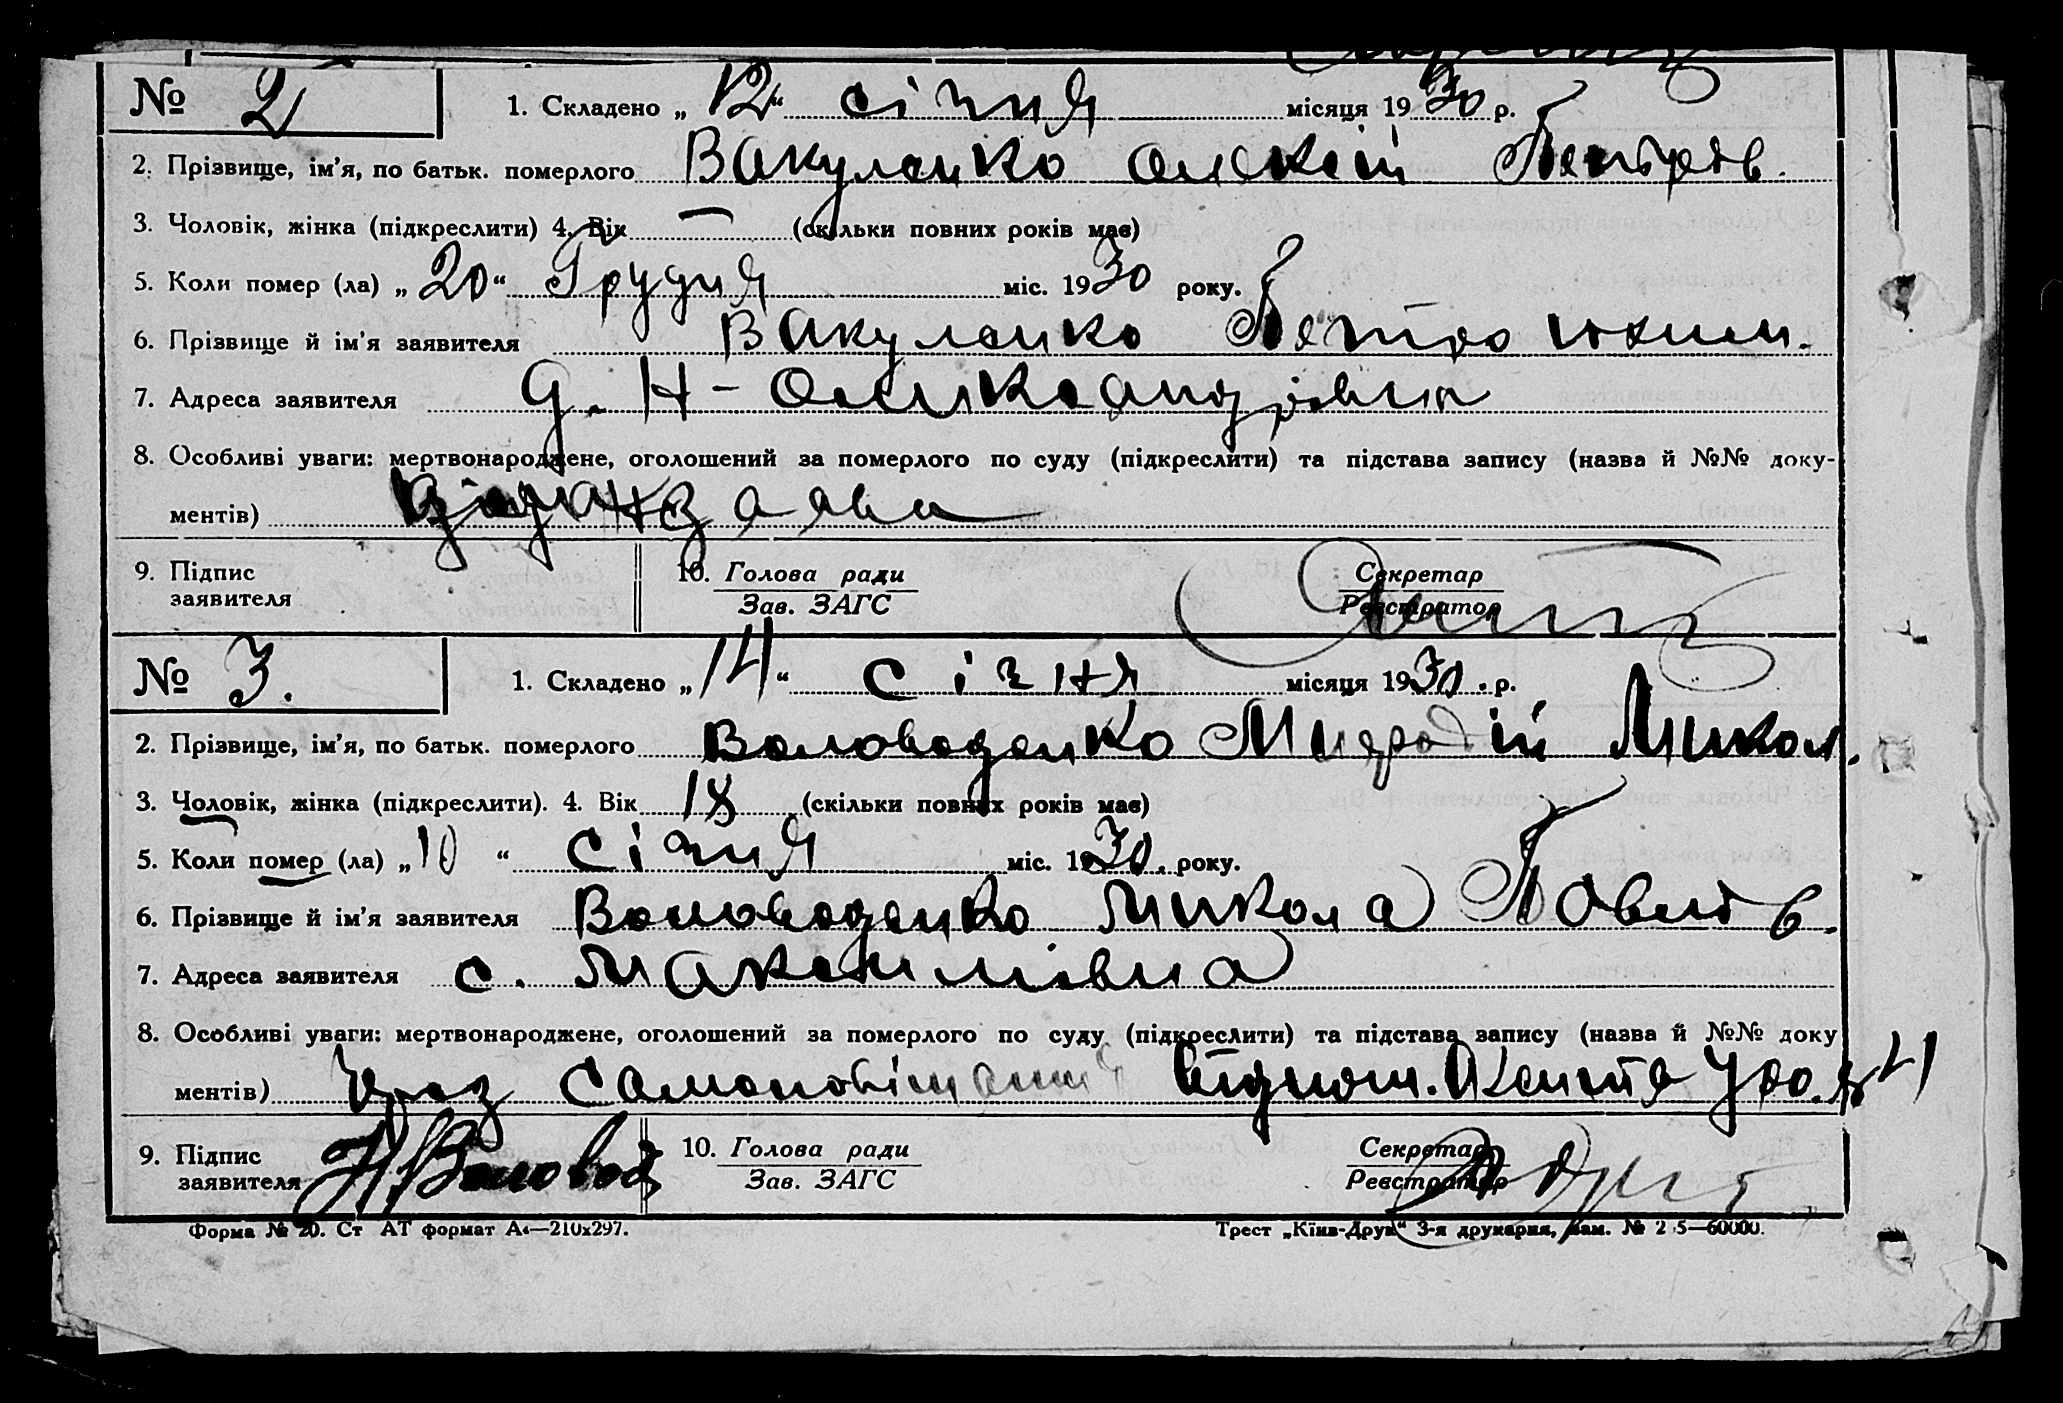 № 2 1. Складено „ 12 “ січня місяця 1930 р.
2. Прізвище, ім'я, по батьк. померлого Вакуленко Олексій Петров.
3. Чоловік, жінка (підкреслити) 4. Вік — (скільки повних років має)
5. Коли помер (ла) „ 20 “ Грудня міс. 1930 року.
6. Прізвище й ім'я заявителя Вакуленко Петро Юхим.
7. Адреса заявителя
8. Особливі уваги: мертвонароджене, оголошений за померлого по суду (підкреслити) та підстава запису (назва й №№ доку-
ментів) заява
9. Підпис заявителя 10. Голова ради Зав. ЗАГС Секретар Реєстратор
№ 3. 1. Складено „ 14 “ січня місяця 1930. р.
2. Прізвище, ім'я, по батьк. померлого Воловоденко Микол.
3. Чоловік, жінка (підкреслити). 4. Вік 18 (скільки повних років має)
5. Коли помер (ла) „ 10 “ січня міс. 1930. року.
6. Прізвище й ім'я заявителя Воловоденко Микола
7. Адреса заявителя с. Максимівка
8. Особливі уваги: мертвонароджене, оголошений за померлого по суду (підкреслити) та підстава запису (назва й №№ доку
ментів)
9. Підпис заявителя 10. Голова ради Зав. ЗАГС Секретар Реєстратор
Форма № 20. Ст АТ формат А4—210х297. Трест „Київ-Друк“ 3-я друкарня, зам.